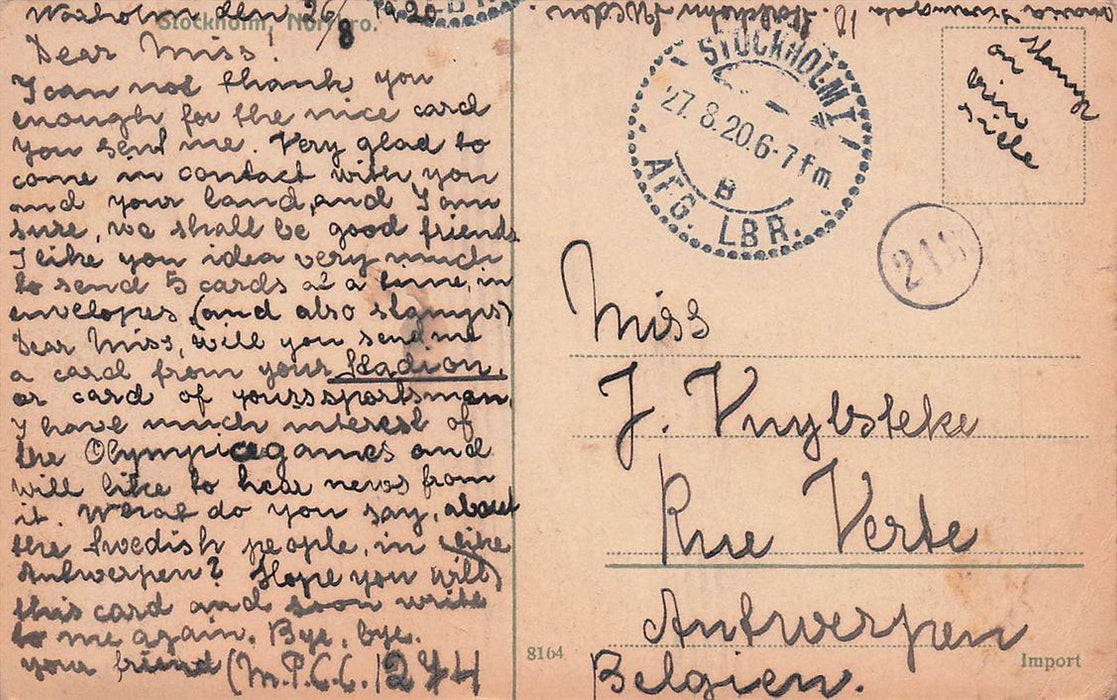 den 26/8 1920
Stockholm, Norrbro.
Dear Miss!
I can not thank you
enough for the nice card
you sent me. Very glad to
come in contact with you
and your land, and I am
sure, we shall be good friends
I like you idea very much
to send 5 cards at a time, in
envelopes, (and also stamps)
Dear Miss, will you send me
a card from your Stadion,
or card of yours sportsman,
I have much interest of
the Olympic games and
will like to hear news from
it. What do you say, about
the Swedish people, in
Antwerpen? Hope you will like
this card and soon write
to me again. Bye, bye.
your friend (M.P.C.C.) 244
Stockholm Sweden.
STOCKHOLM 1
27.8.20.6-7 fm
B
AFG. LBR.
Stamp
on
side
218
Miss
J. Vuylsteke
Rue Verte
Antwerpen
Belgien.
8164
Import